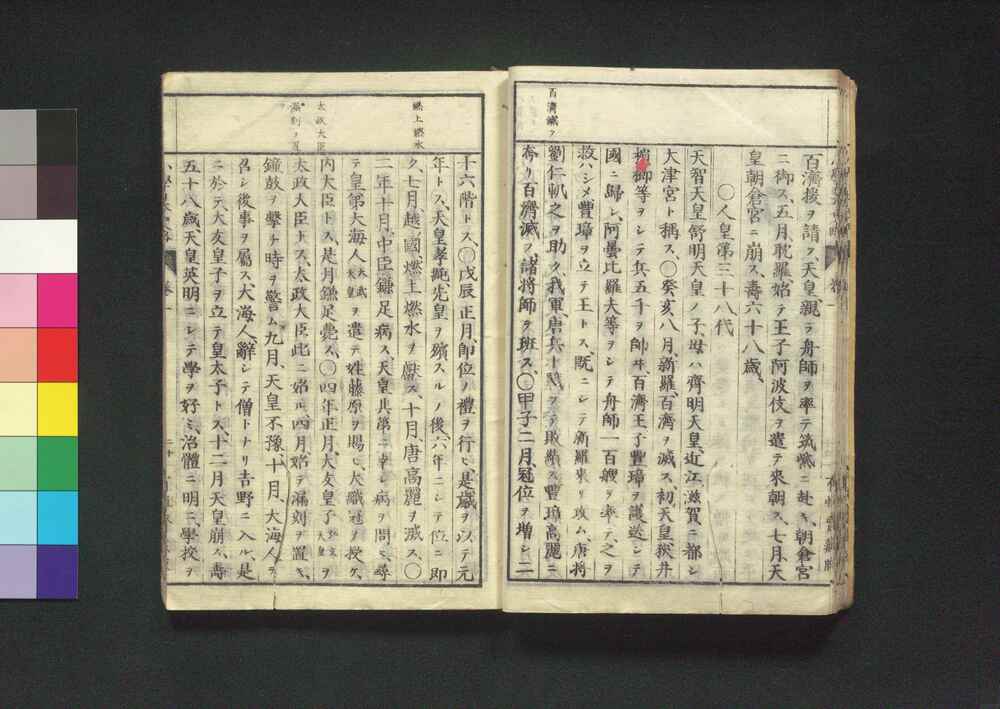 百濟滅フ
百濟援ヲ請フ、天皇親ラ舟師ヲ率テ筑紫ニ赴キ、朝倉宮
ニ御ス、五月耽羅始テ王子阿波伎ヲ遣テ來朝ス、七月天
皇朝倉宮ニ崩ス、壽六十八歲、
〇人皇第三十八代
天智天皇舒明天皇ノ子、母ハ齊明天皇、近江滋賀ニ都シ
大津宮ト稱ス、〇癸亥八月、新羅、百濟ヲ滅ス、初天皇、狹井
檳榔等ヲシテ兵五千ヲ帥ヰ、百濟王子豐璋ヲ護送シテ
國ニ歸シ、阿曇比羅夫等ヲシテ舟師一百艘ヲ率テ之ヲ
救ハシメ豐璋ヲ立テ王トス、既ニシテ新羅來リ攻ム、唐將
劉仁軌之ヲ助ク、我軍、唐兵ト戰ヲテ敗績ス豐璋高麗ニ
奔リ百濟滅フ、諸將師ヲ班ス、〇甲子二月、冠位ヲ增シ、二
燃土燃水
太政大臣
漏刻ヲ置
ク
十六階トス、〇戊辰正月、卽位ノ禮ヲ行ヒ、是歲ヲ以テ元
年トス、天皇孝純、先皇ヲ殯スルノ後、六年ニシテ位ニ卽
ク、七月越ノ國、燃土燃水ヲ獻ス、十月、唐高麗ヲ滅ス、〇
二年十月、中臣鎌足病ス、天皇其第ニ幸シ病ヲ問ヒ、尋
テ皇弟大海人天武天皇ヲ遣テ姓藤原ヲ賜ヒ、大織冠ヲ授ケ、
内大臣トス、是月鎌足薨ス、〇四年正月、大友皇子弘文天皇ヲ
太政大臣トス、太政大臣此ニ始ル、四月、始テ漏刻ヲ置キ、
鐘鼓ヲ擊チ時ヲ警ム、九月、天皇不豫、十月、大海人ヲ
召シ後事ヲ屬ス、大海人、辭シテ僧トナリ吉野ニ入ル、是
ニ於テ大友皇子ヲ立テ皇太子トス、十二月天皇崩ス、壽
五十八歲、天皇英明ニシテ學ヲ好ミ、治體ニ明ニ、學校ヲ